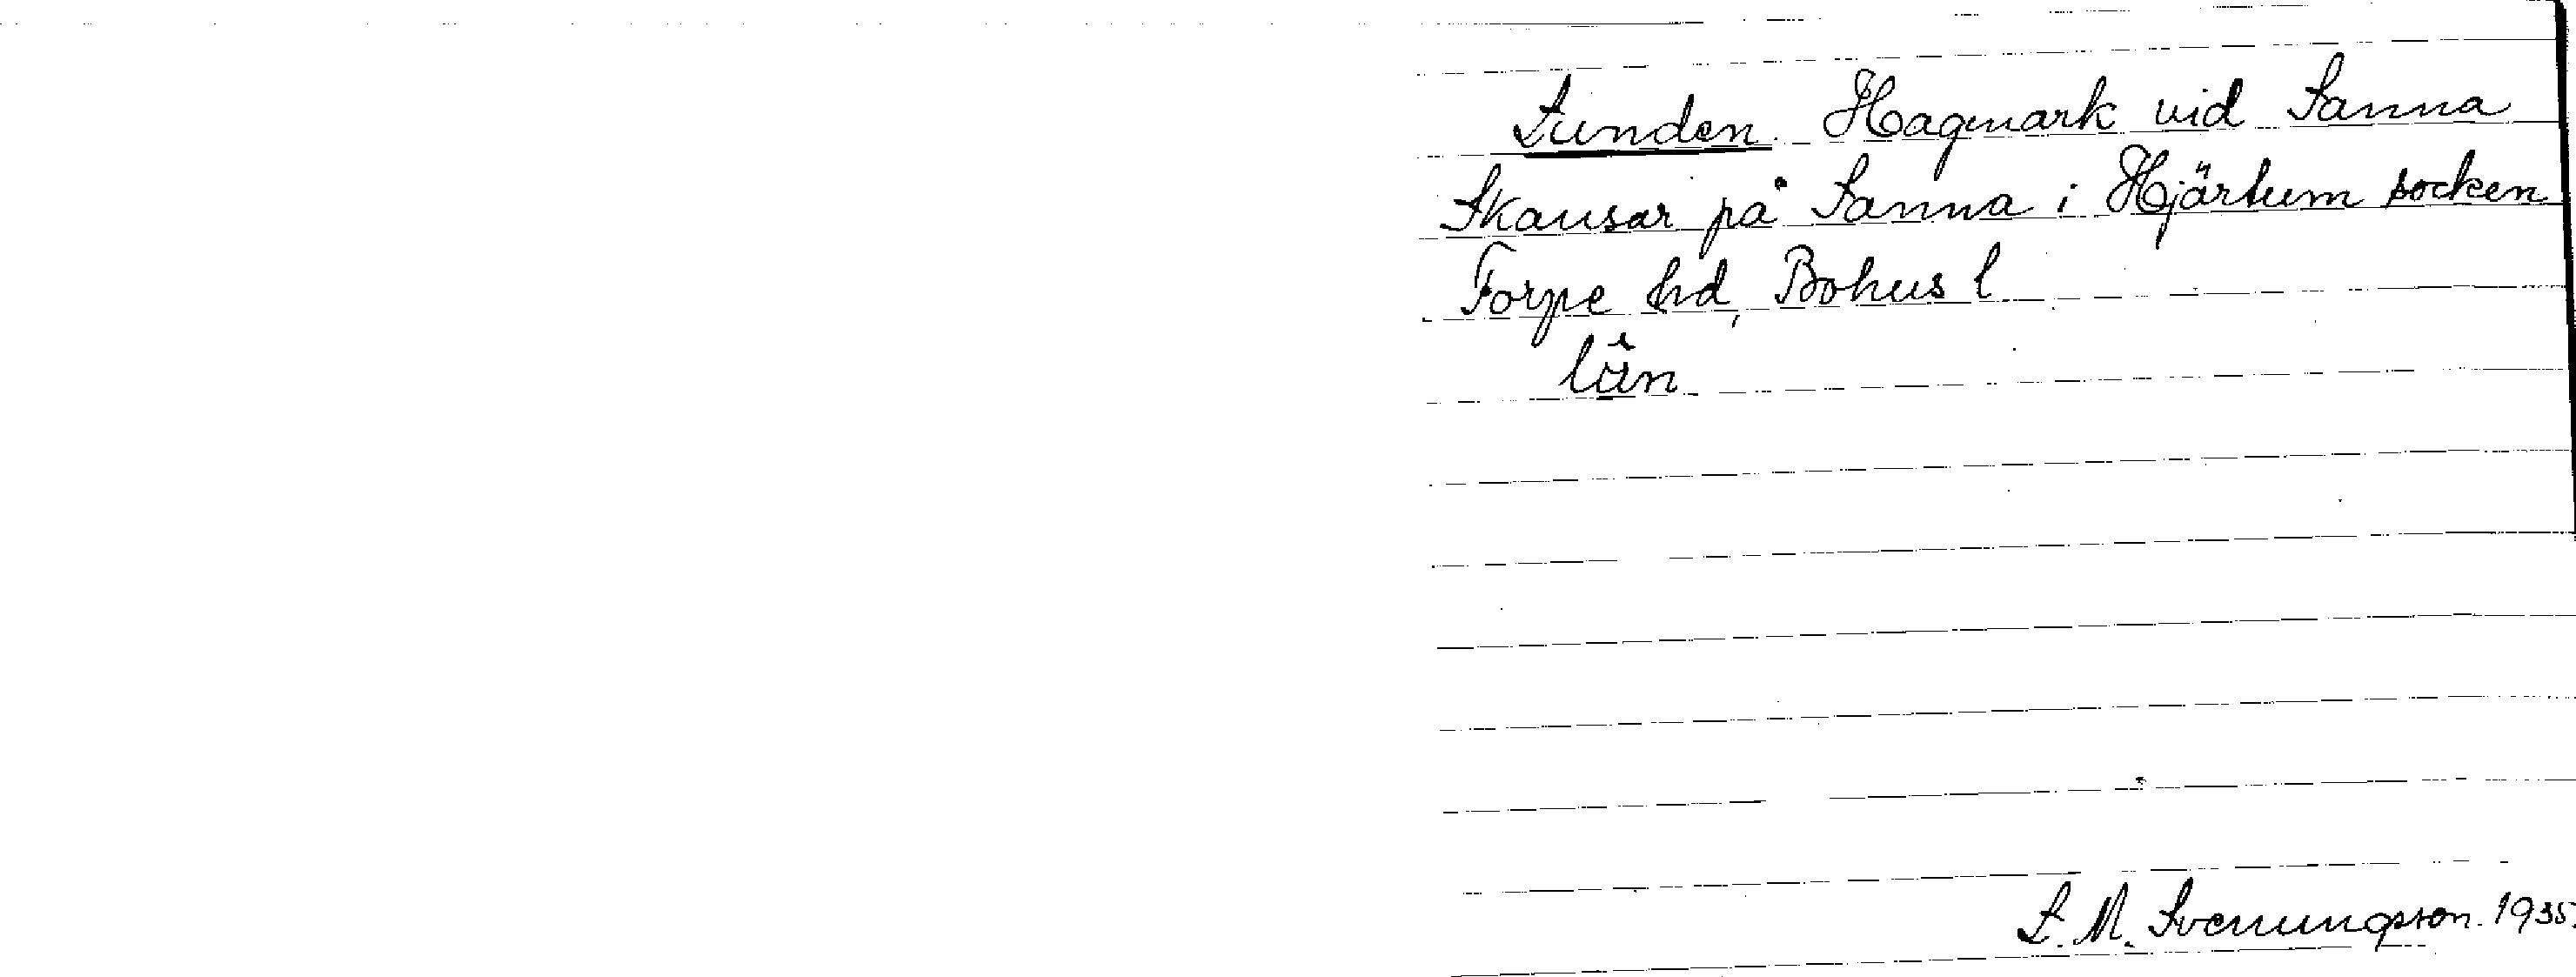 Lunden. Hagmark vid Sanna
Skausar på Sanna i Hjärtum socken
Torpe hd, Bohus l
län
L. M. Svenungsson. 1935.